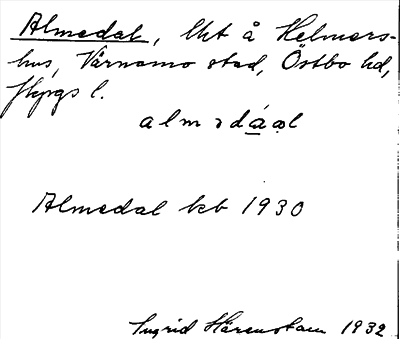 Almedal, lht å Helmers-
hus, Värnamo stad, Östbo hd,
Jkpgs l.
almədáal
Almedal kb 1930
Ingrid Härenstam 1932